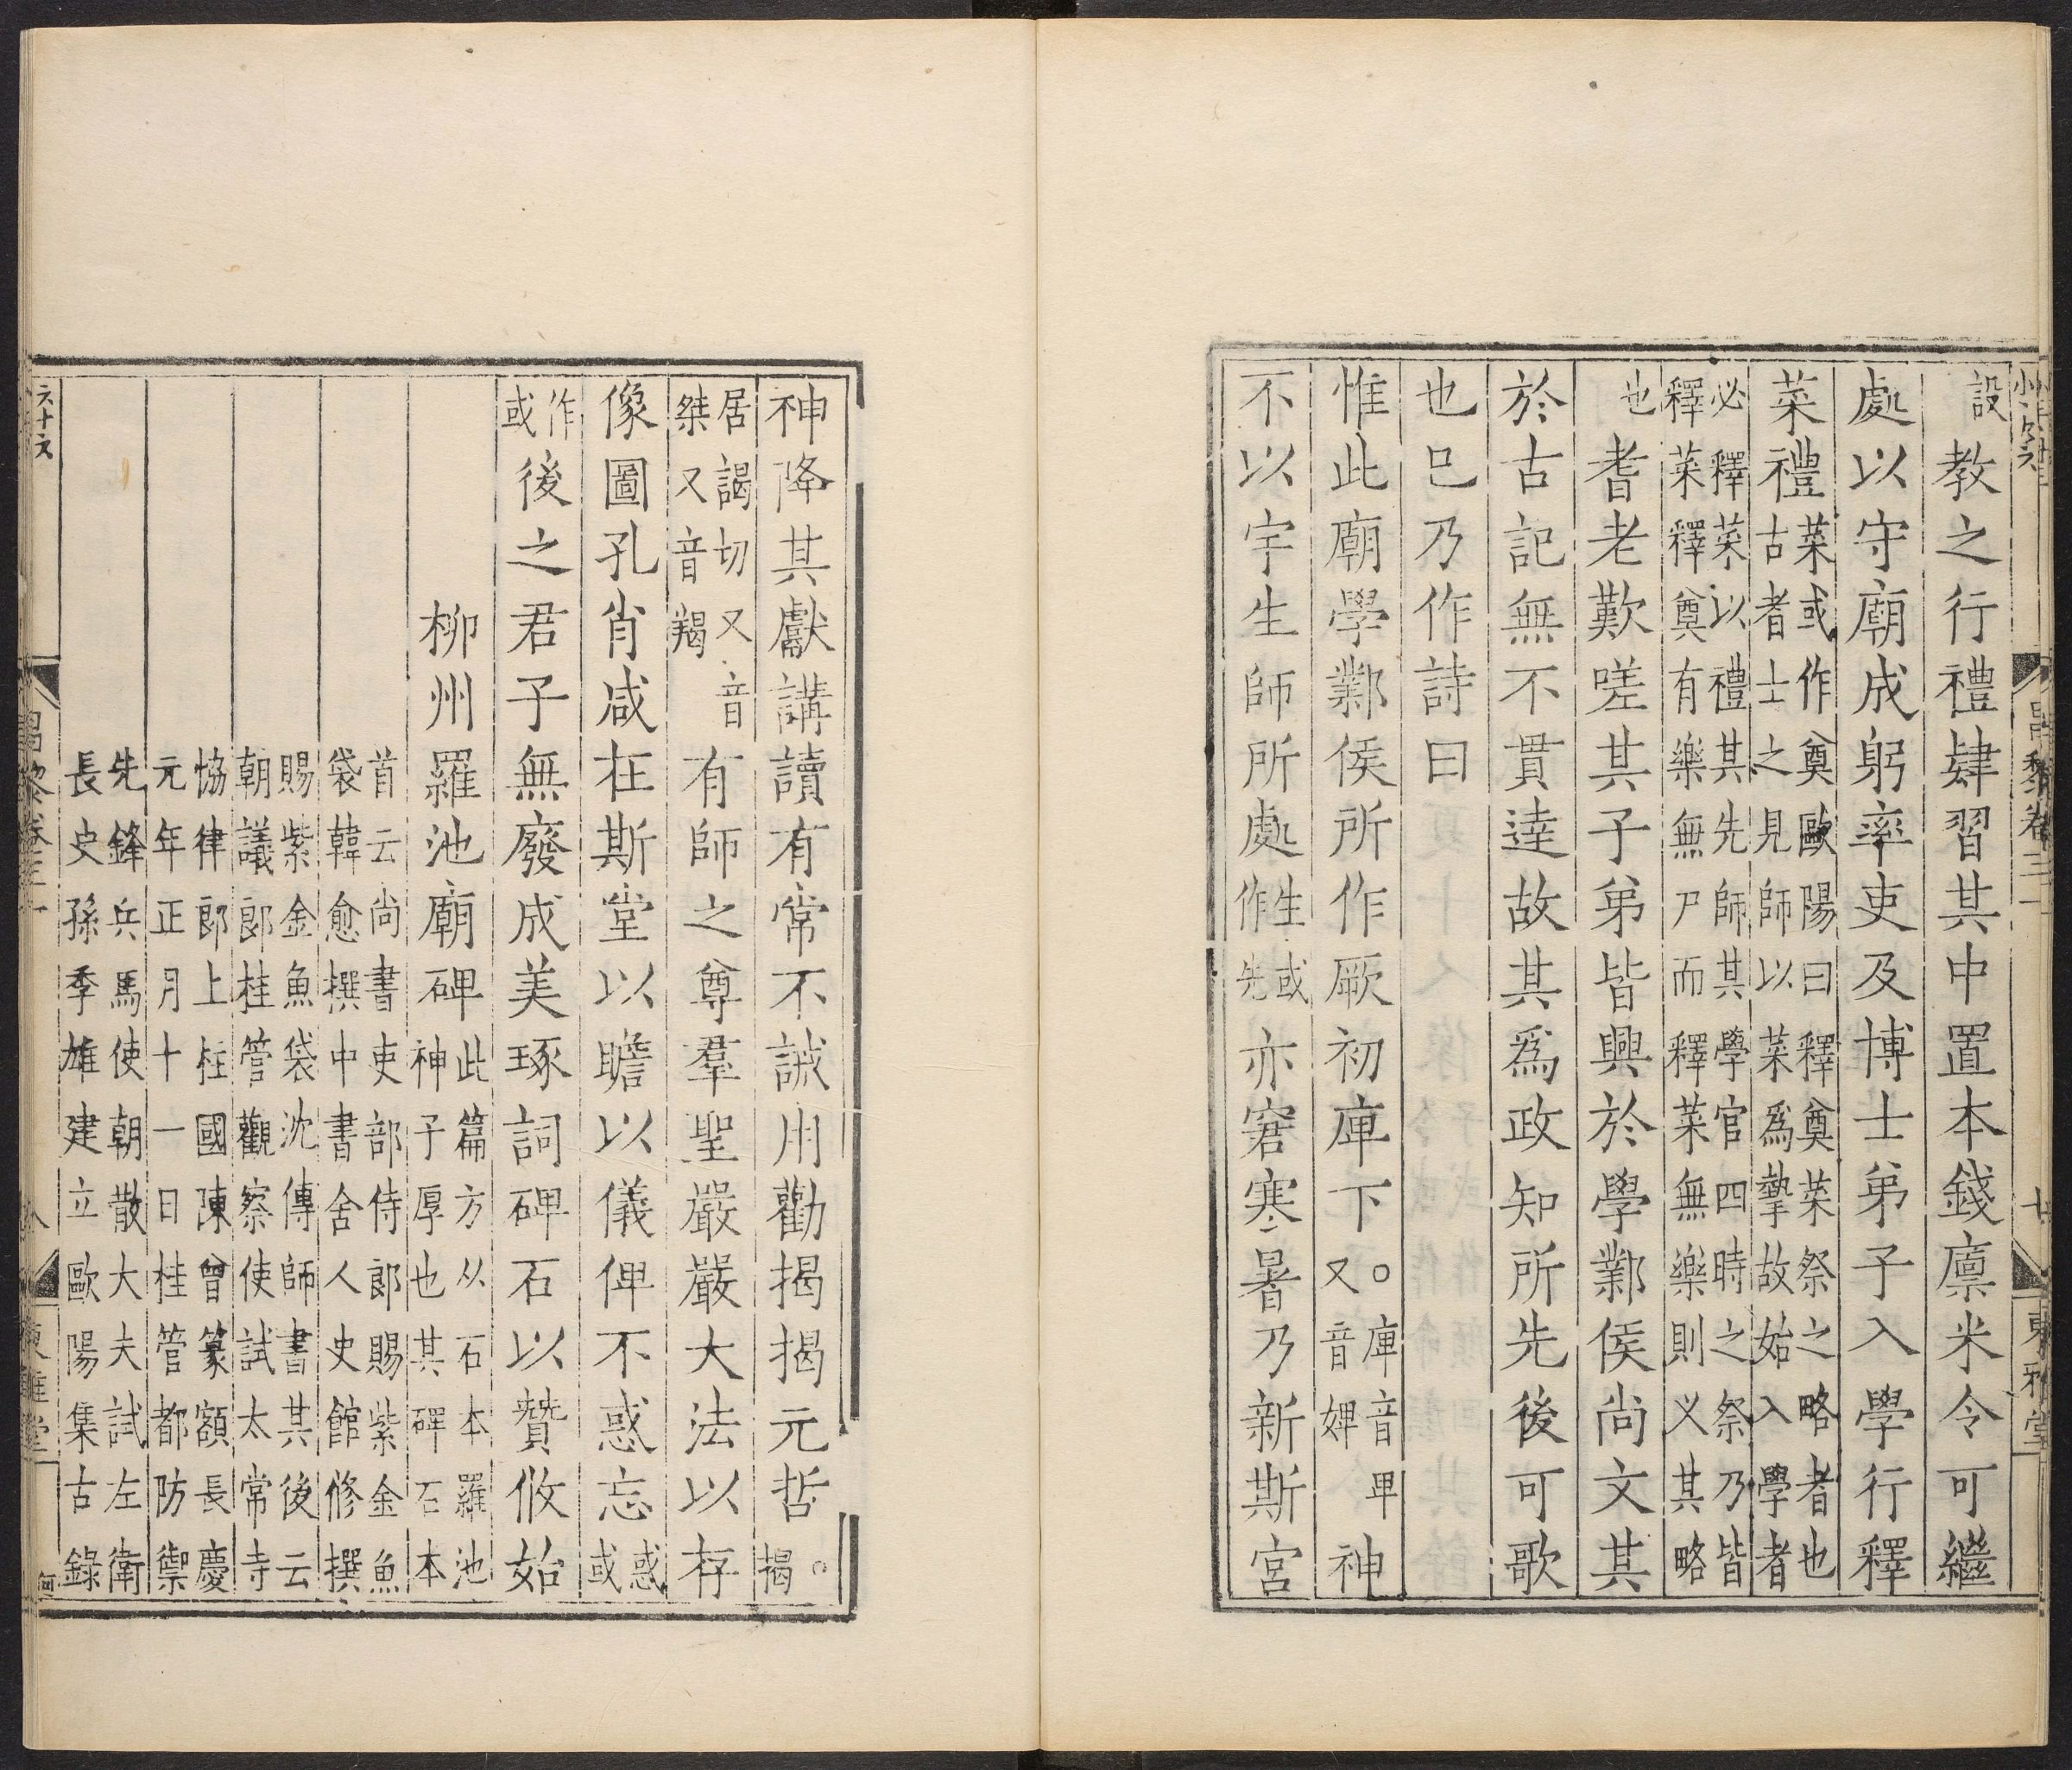 設教之行禮肄習其中置本錢廩米令可繼
處以守廟成躬率吏及博士弟子入學行釋
菜禮菜或作奠歐陽曰釋奠菜祭之略者也古者士之見師以菜爲摯故始入學者
必釋菜以禮其先師其學官四時之祭乃皆釋菜釋奠有樂無尸而釋菜無樂則又其略
也耆老歎嗟其子弟皆興於學鄴侯尚文其
於古記無不貫達故其爲政知所先後可歌
也巳乃作詩曰
惟此廟學鄴侯所作厥初庳下○庳音卑又音婢神
不以宇生師所處生或作先亦窘寒暑乃新斯宮
神降其獻講讀有常不誡用勸揭揭元哲○揭
居謁切又音桀又音羯有師之尊羣聖嚴嚴大法以存
像圖孔肖咸在斯堂以瞻以儀俾不惑忘惑或
作或後之君子無廢成美琢詞碑石以贊攸始
柳州羅池廟碑此篇方从石本羅池神子厚也其碑石本
首云尚書吏部侍郎賜紫金魚袋韓愈撰中書舍人史館修撰
賜紫金魚袋沈傳師書其後云朝議郎桂管觀察使試太常寺
協律郎上柱國陳曾篆額長慶元年正月十一日桂管都防禦
先鋒兵馬使朝散大夫試左衛長史孫季雄建立歐陽集古錄
六十六
昌黎卷三一
八
東雅堂
昌黎卷三一
七
東雅堂